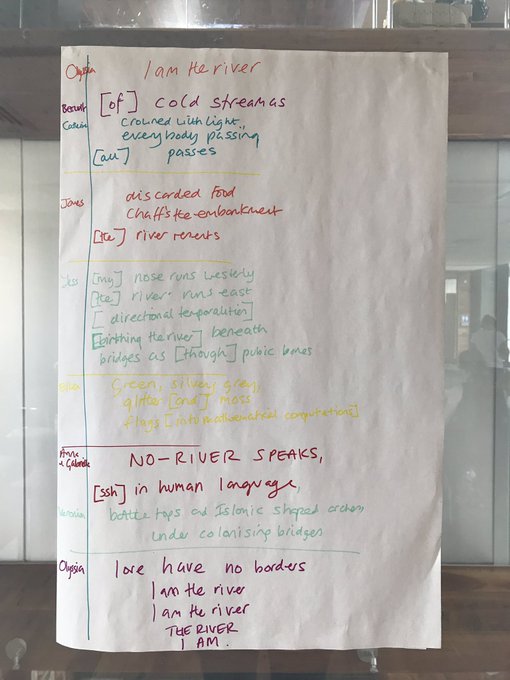 Olyssia I am the river
Beccurt [of] cold streamas
Catrin crowned with light
everybody passing
[all] passes
James discarded food
chaffs the embankment
[the] river resents
Jess [my] nose runs westerly
[the] river runs east
[directional temporalities]
[birthing the river] beneath
bridges as [though] pubic bones
Green, silver, grey,
glitter [and] moss
flags [into mathematical computations]
Anna & Gabrielle NO-RIVER SPEAKS,
[ssh] in human language,
Veronica bottle tops and Islamic shaped arches,
under colonising bridges
Olyssia I ore have no borders
I am the river
I am the river
THE RIVER
I AM.